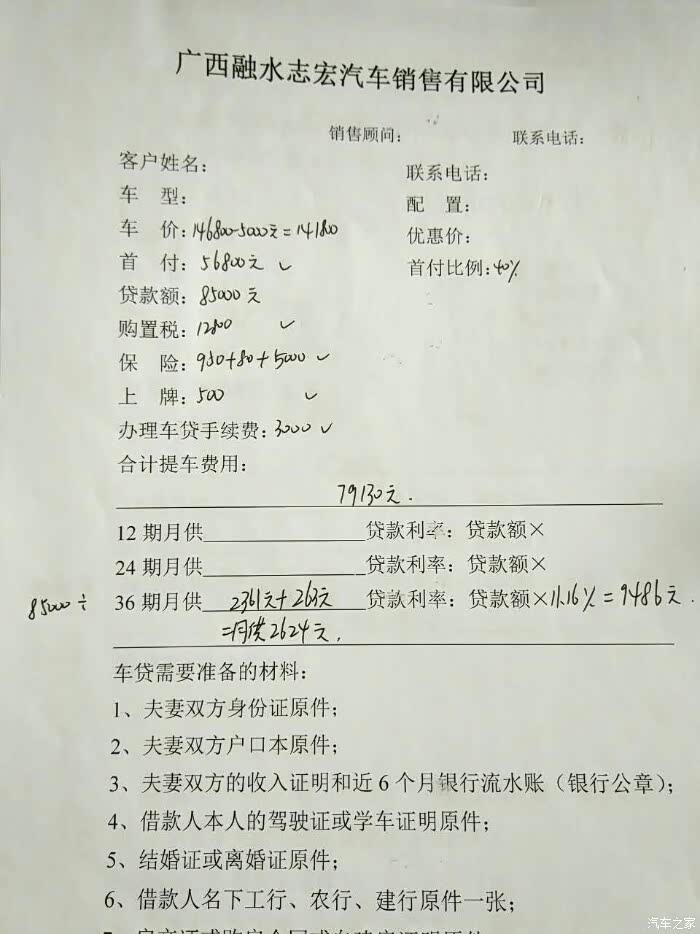 广西融水志宏汽车销售有限公司
销售顾问： 联系电话：
客户姓名： 联系电话：
车 型： 配 置：
车 价：146800-5000元=141800 优惠价：
首 付：56800元 ✓ 首付比例：40%
贷款额：85000元
购置税：12800 ✓
保 险：950+80+5000 ✓
上 牌：500 ✓
办理车贷手续费：3000 ✓
合计提车费用：
79130元.
12期月供 贷款利率：贷款额×
24期月供 贷款利率：贷款额×
85000÷ 36期月供 2361元+263元 贷款利率：贷款额×11.16%=9486元.
=月供2624元.
车贷需要准备的材料：
1、夫妻双方身份证原件；
2、夫妻双方户口本原件；
3、夫妻双方的收入证明和近6个月银行流水账（银行公章）；
4、借款人本人的驾驶证或学车证明原件；
5、结婚证或离婚证原件；
6、借款人名下工行、农行、建行原件一张；
汽车之家